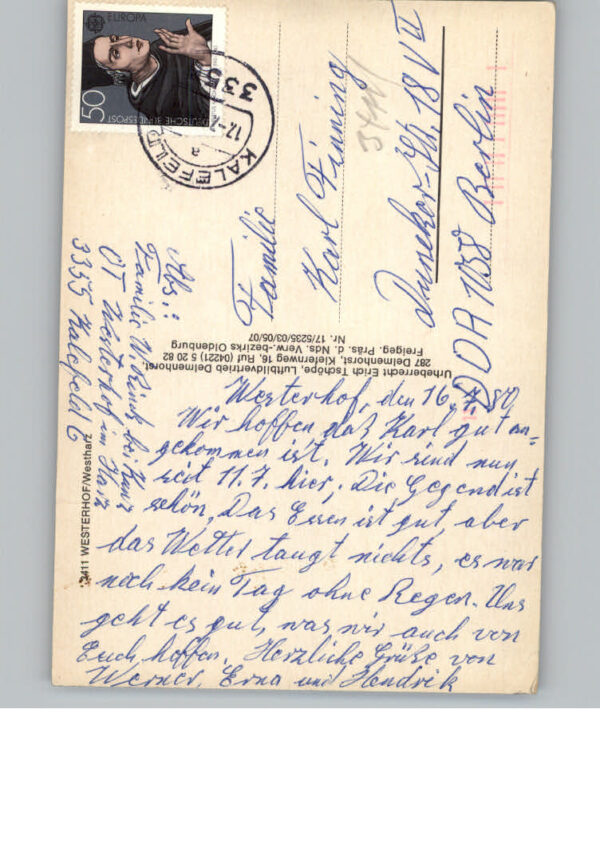 EUROPA
50
DEUTSCHE BUNDESPOST
335
17.-7
a
KALEFELD
Familie
Karl Finning
Dunckerstr. 18 VII
DDR 1058 Berlin
Abs.:
Familie W. bei Kunz
OT Westerhof im Harz
3355 Kalefeld 6
3411 WESTERHOF/Westharz
Urheberrecht Erich Tschöpe, Luftbildvertrieb Delmenhorst,
287 Delmenhorst, Kiefernweg 16, Ruf (04221) 5 20 82
Freigeg. Präs. d. Nds. Verw.-bezirks Oldenburg
Nr. 17/5235/03/05/07
Westerhof, den 16.7.80
Wir hoffen daß Karl gut an-
gekommen ist. Wir sind nun
seit 11.7. hier, Die Gegend ist
schön, Das Essen ist gut, aber
das Wetter taugt nichts, es war
noch kein Tag ohne Regen. Uns
geht es gut, was wir auch von
Euch hoffen. Herzliche Grüße von
Werner, Erna und Hendrik